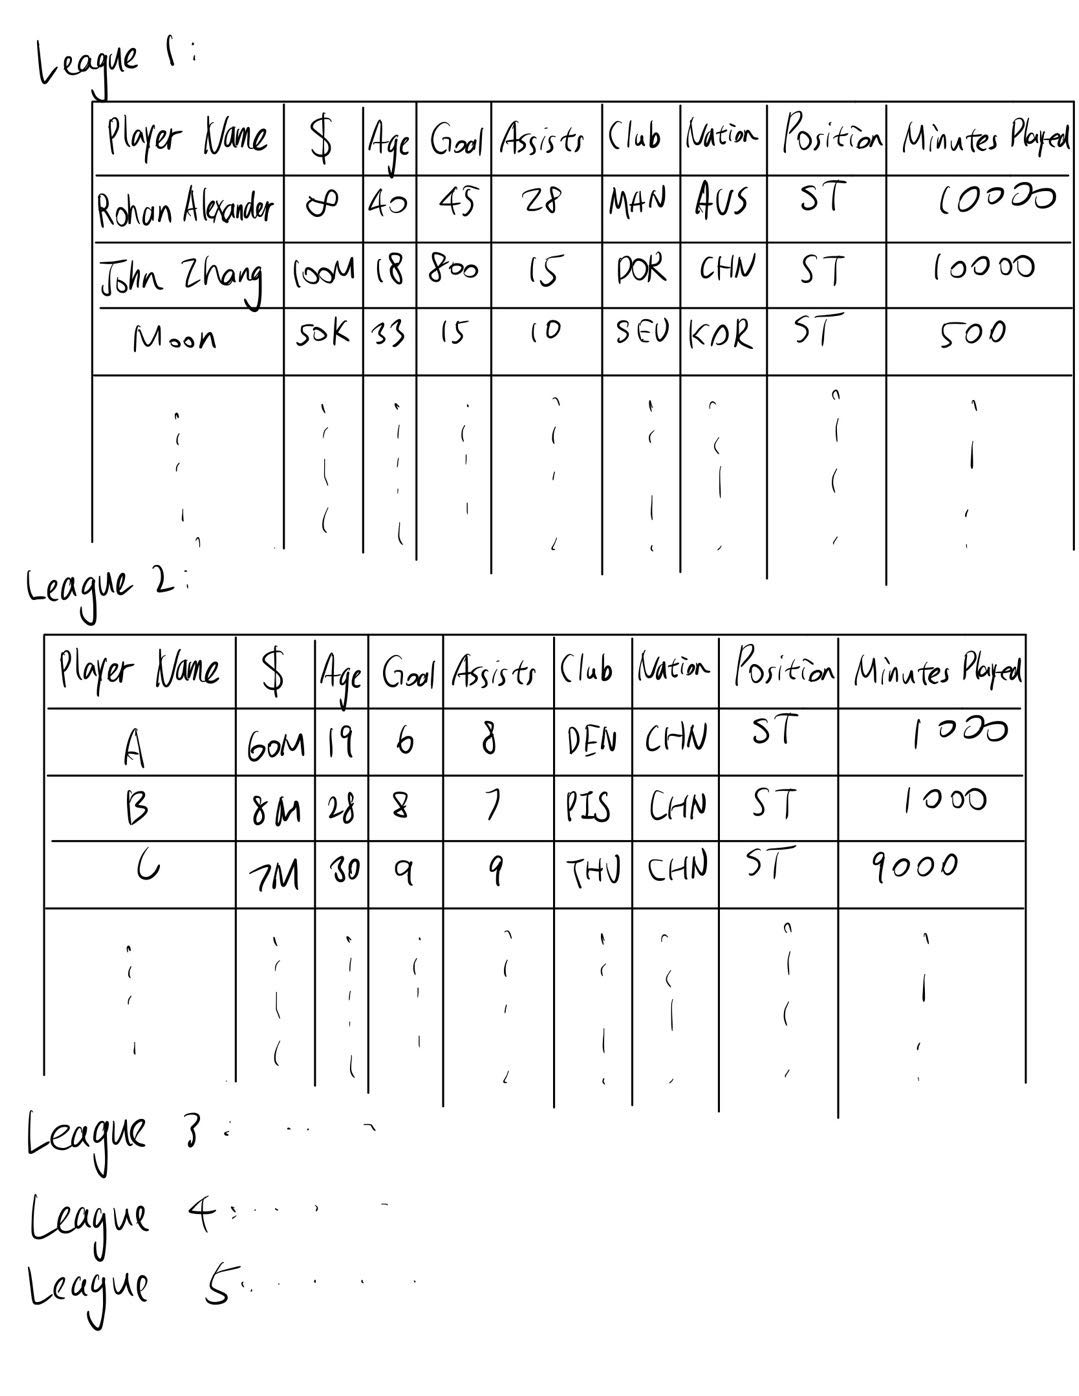 League 1:
Player Name $ Age Goal Assists Club Nation Position Minutes Played
Rohan Alexander ∞ 40 45 28 MAN AUS ST 10000
John Zhang 100M 18 800 15 DOR CHN ST 10000
Moon 50K 33 15 10 SEU KOR ST 500
League 2:
Player Name $ Age Goal Assists Club Nation Position Minutes Played
A 60M 19 6 8 DEN CHN ST 1000
B 8M 28 8 7 PIS CHN ST 1000
C 7M 30 9 9 THU CHN ST 9000
League 3:
League 4:
League 5: